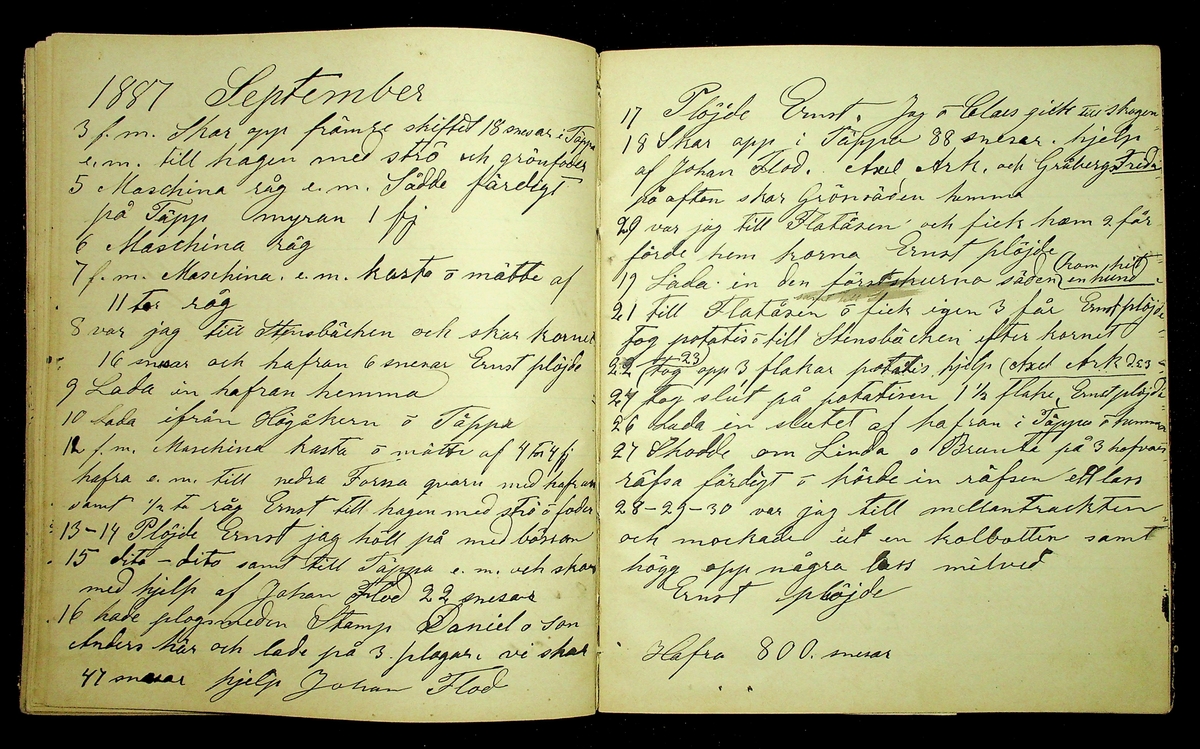 1887 September
3 f. m. Skar opp främre skiftet 18 snesar i Täppa
e. m. till hagen med strö och grönfoder
5 Maschina råg e. m. Sådde färdigt
på Täpp myran 1 fj
6 Maschina råg
7 f. m. Maschina. e. m. kasta o mätte af
11 tor råg
8 var jag till Stensbäcken och skar kornet
16 snesar och hafran 6 snesar Ernst plöjde
9 Lada in hafran hemma
10 Lada ifrån Högåkern o Täppa
12 f. m. Maschina kasta o mätte af 4 tor 4 fj
hafra e. m. till nedra Forna qvarn med hafran
samt 1/2 ta råg Ernst till hagen med strö o foder
13-14 Plöjde Ernst jag höll på med bössan
15 dito - dito samt till Täppa e. m. och skar
med hjelp af Johan Flod 22 snesar
16 hade plogsmeden Stamp Daniel o son
Anders här och lade på 3 plogar, vi skar
47 snesar hjelp Johan Flod
17 Plöjde Ernst, Jag o Claes gick till skogen
18 Skar opp i Täppa 88 snesar. hjelp
af Johan Flod. Axel Ark. och Gråbergs
på afton skar Grönsäden hemma
29 var jag till Flatåsen och fick hem 2 får
förde hem korna Ernst plöjde
19 Lada in den först skurna säden (kom hit
en hund
21 till Flatåsen o fick igen 3 får Ernst plöjde
tog potatis o till Stensbäcken efter kornet
22 (23) tog opp 3 flakar potatis hjelp (Axel Ark d 23
24 tog slut på potatisen 1 1/2 flake, Ernst plöjde
26 Lada in slutet af hafran i Täppa o hemma
27 Skodde om Linda o Brunta på 3 hofvar
räfsa färdigt o körde in räfsen ett lass
28-29-30 var jag till mellantrackten
och mockade ut en kolbotten samt
högg opp några lass milved
Ernst plöjde
Hafra 800. snesar